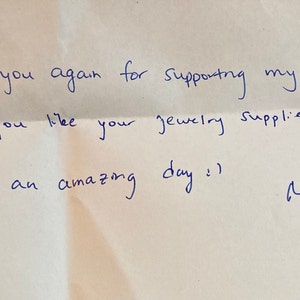 you again for supporting my
you like your jewelry supplie
an amazing day :)